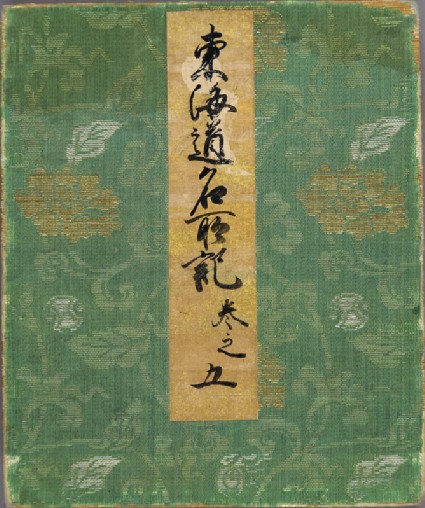 東海道名所記 巻之五